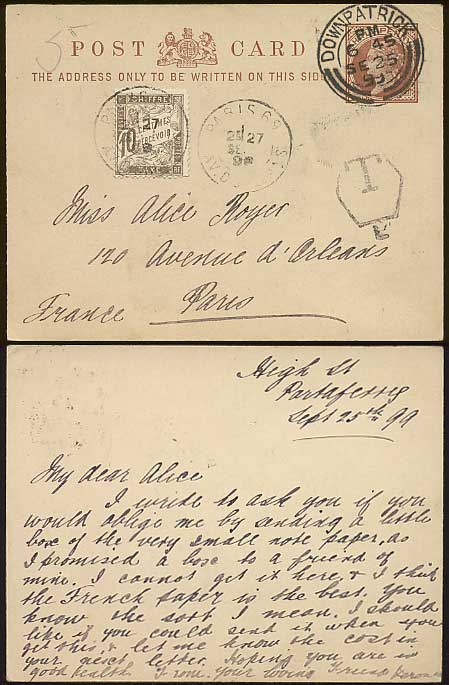 5
POST CARD
THE ADDRESS ONLY TO BE WRITTEN ON THIS SIDE
DOWNPATRICK
6 PM
45
SE 25
99
CHIFFRE
10
CENTIMES
A PERCEVOIR
TAXE
27
PARIS 69
27
SE
T
Miss Alice Royer
120 Avenue d'Orleans
Paris
France
High St
Portaferry
Sept 25th 99
My dear Alice
I write to ask you if you
would oblige me by sending a little
box of the very small note paper, as
I promised a box to a friend of
mine. I cannot get it here & I think
the French paper is the best. You
know the sort I mean. I should
like if you could send it when you
get this, & let me know the cost in
your next letter. Hoping you are in
good health From your loving Friend